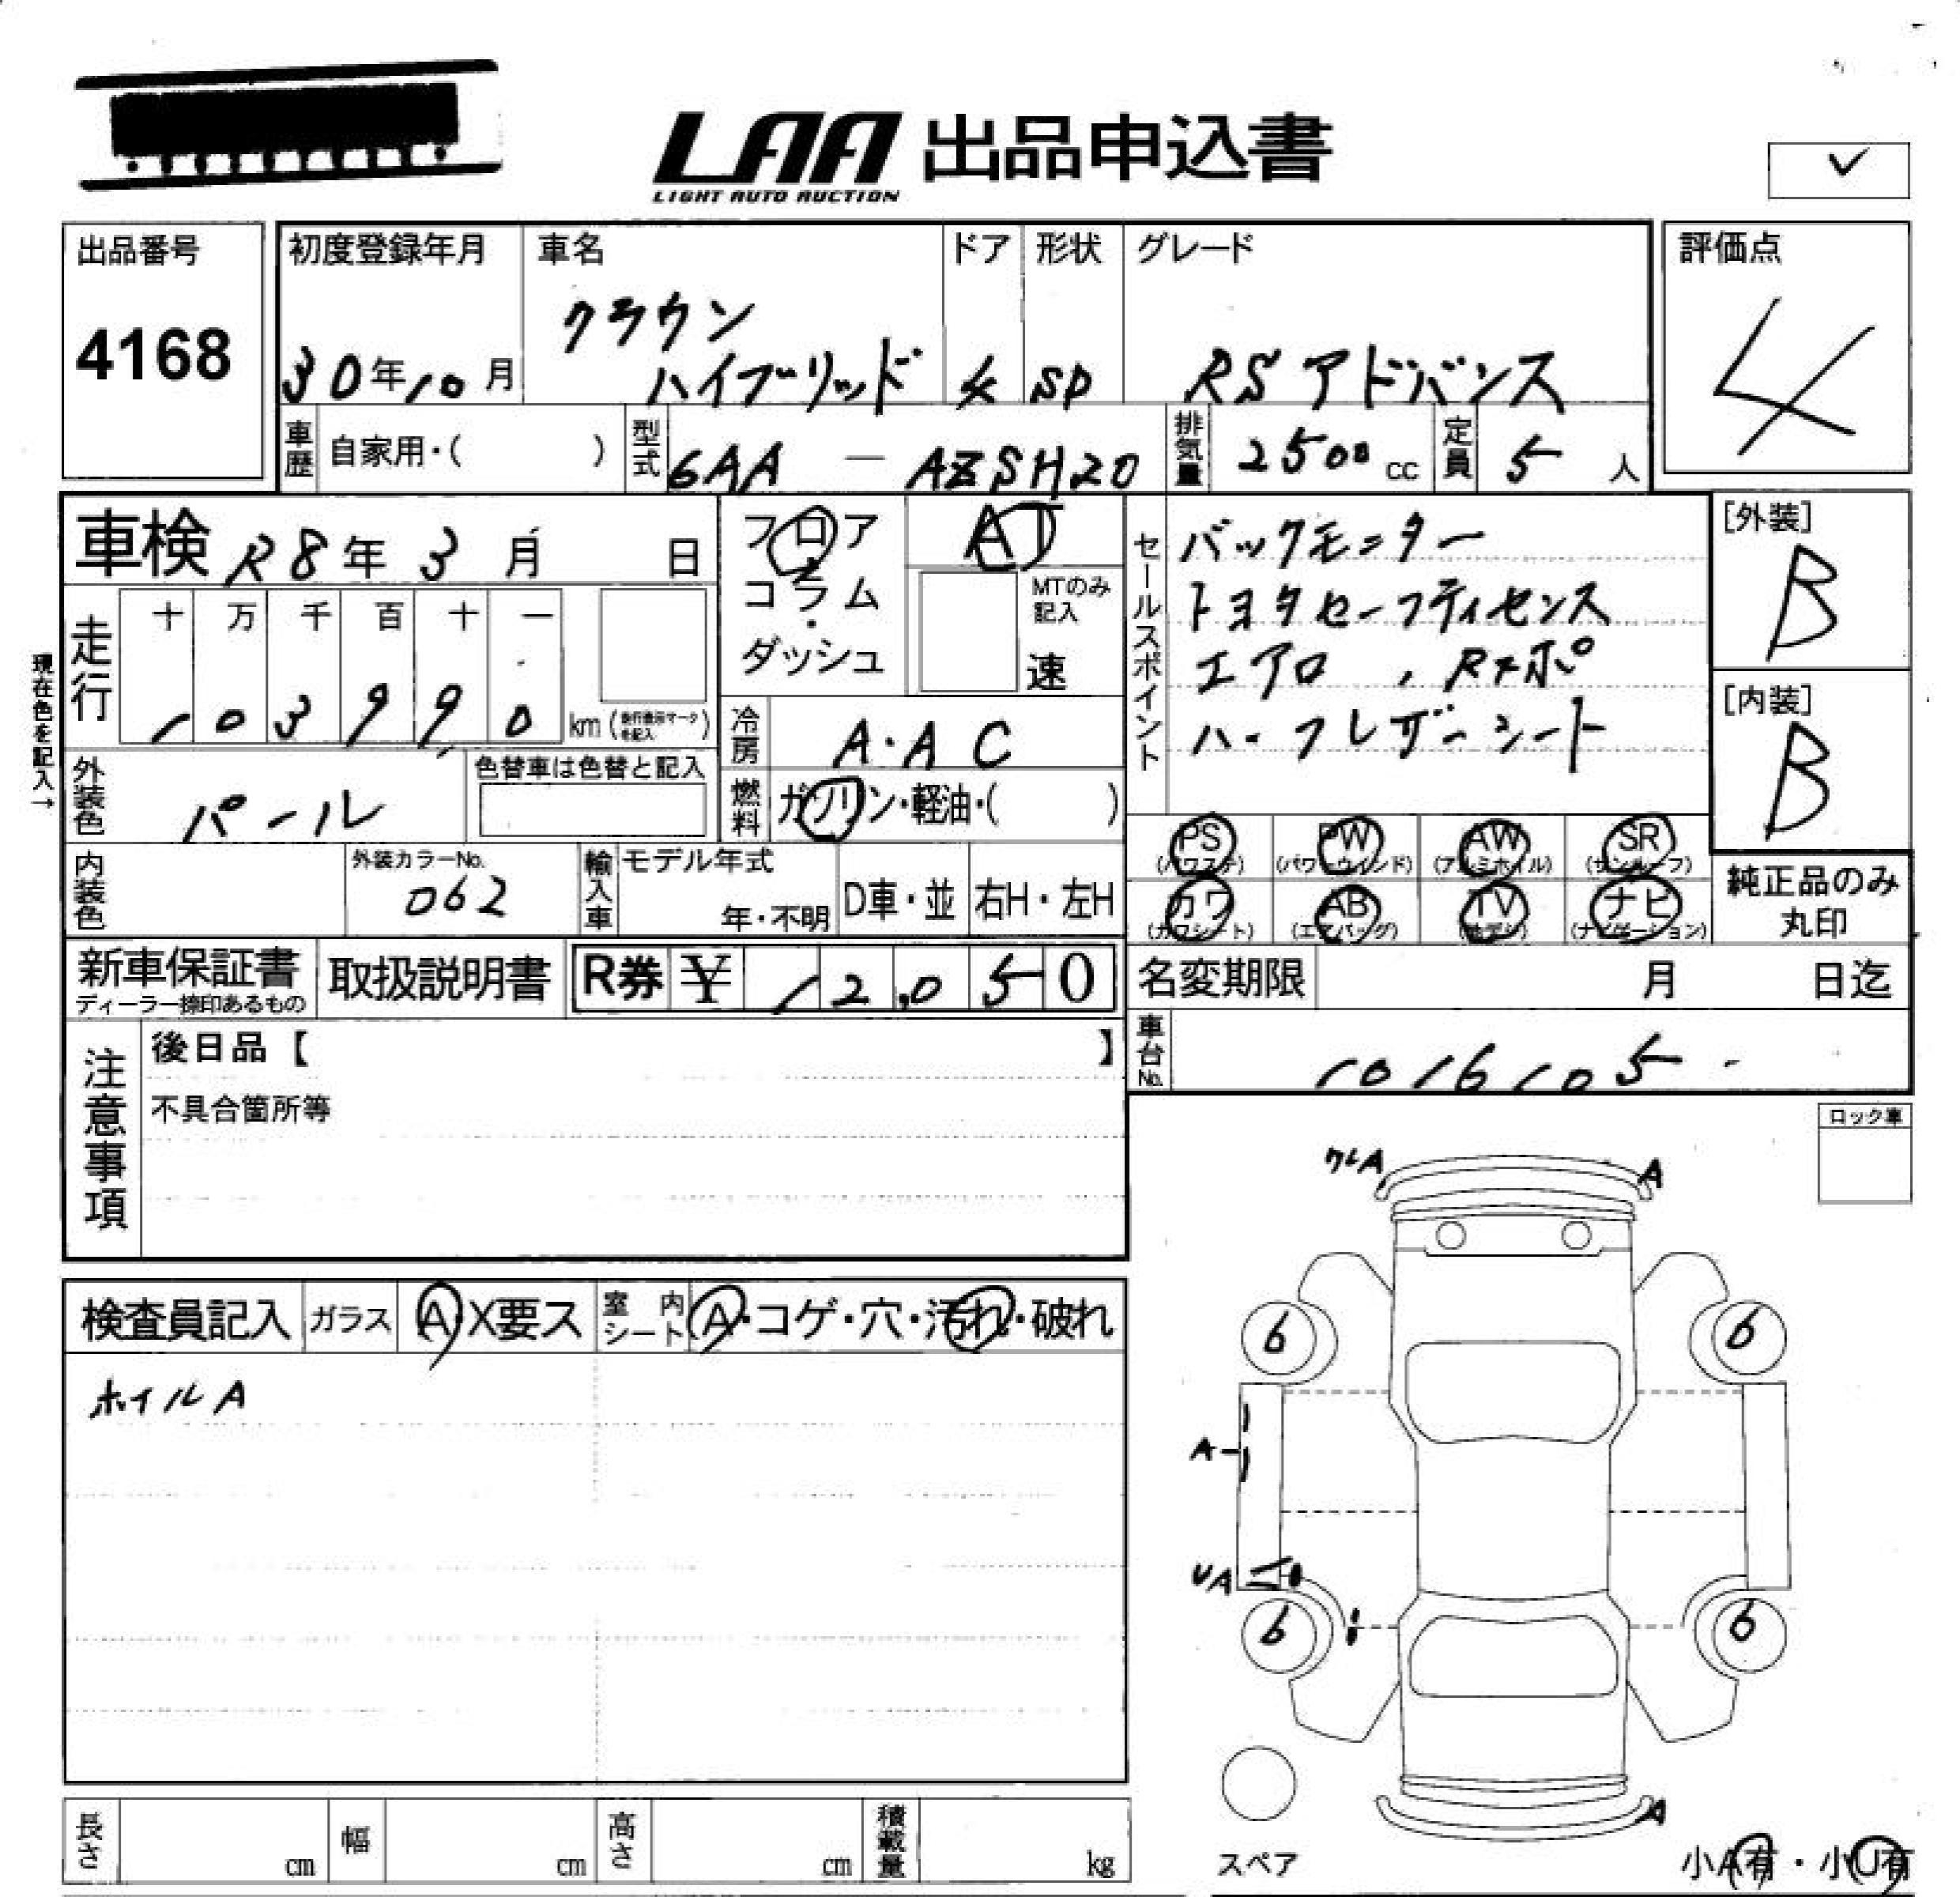 LAA 出品申込書
LIGHT AUTO AUCTION
出品番号
4168
初度登録年月
30年10月
車名
クラウン
ハイブリッド
ドア
4
形状
SD
グレード
RSアドバンス
評価点
4
車歴 自家用・( )
型式 6AA - AZSH20
排気量 2500 cc
定員 5 人
車検 R8年 3月 日
フロア
コラム
ダッシュ
AT
MTのみ
記入
速
セールスポイント
バックモニター
トヨタセーフティセンス
エアロ
ハーフレザーシート
[外装]
B
[内装]
B
現在色を記入→
走行
十 万 千 百 十 一
1 0 3 9 9 0 km (走行表示マークを記入)
冷房 A・A C
外装色 パール
色替車は色替と記入
燃料 ガソリン・軽油・( )
PS
(パワステ)
PW
(パワーウィンド)
AW
(アルミホイル)
SR
(サンルーフ)
カワ
(カワシート)
AB
(エアバッグ)
TV
(地デジ)
ナビ
(ナビゲーション)
純正品のみ
丸印
内装色
外装カラーNo.
062
輸入車
モデル年式
年・不明
D車・並
右H・左H
新車保証書
ディーラー捺印あるもの
取扱説明書
R券 ¥ 12,050
名変期限 月 日迄
車台No. 1016105
注意事項
後日品【 】
不具合箇所等
ロック車
検査員記入 ガラス A・X要ス 室内シート A・コゲ・穴・汚れ・破れ
ホイルA
ワレA
A
6
6
A
UA
6
6
A
スペア
小A有・小U有
長さ cm
幅 cm
高さ cm
積載量 kg